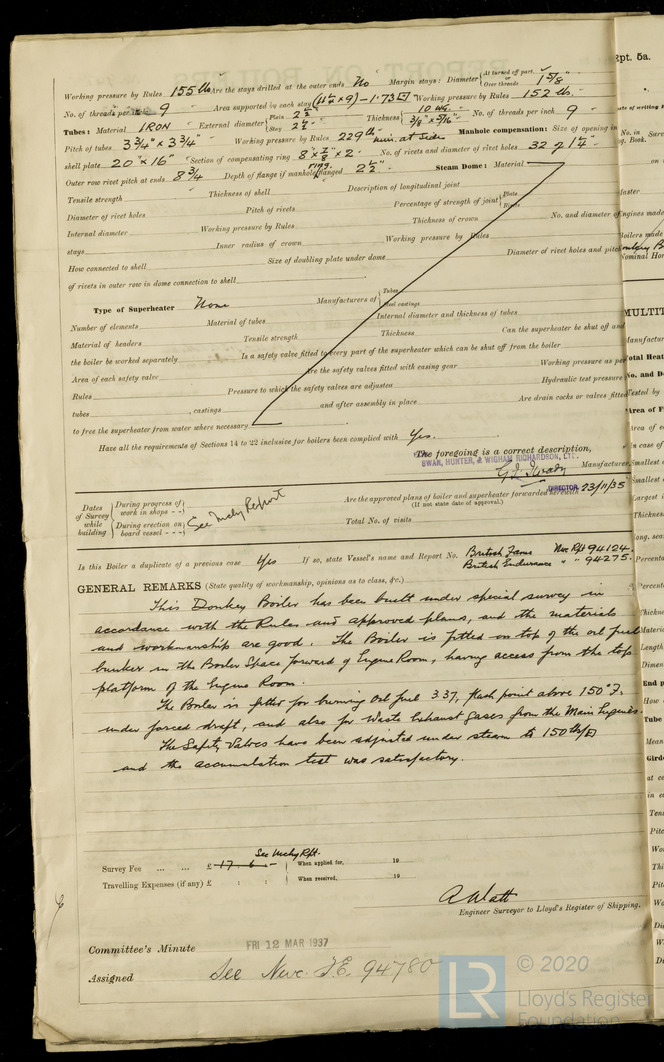 Working pressure by Rules 155 lb Are the stays drilled at the outer ends No Margin stays: Diameter { At turned off part, or Over threads 1 5/8"
No. of threads per inch 9 Area supported by each stay (11½" x 9) - 1.73 Working pressure by Rules 152 lb.
Tubes: Material IRON External diameter { Plain 2½" Stay 2½" Thickness { 10 WG. 3/16" x 5/16" No. of threads per inch 9
Pitch of tubes 3¾" x 3¾" Working pressure by Rules 229 lb min. at sides Manhole compensation: Size of opening in
shell plate 20" x 16" Section of compensating ring 8" x 7/8" x 2 No. of rivets and diameter of rivet holes 32 of 1¼"
Outer row rivet pitch at ends 8¾ Depth of flange if manhole flanged ring. 2½" Steam Dome: Material
Tensile strength Thickness of shell Description of longitudinal joint
Diameter of rivet holes Pitch of rivets Percentage of strength of joint { Plate Rivets
Internal diameter Working pressure by Rules Thickness of crown No. and diameter of
stays Inner radius of crown Working pressure by Rules
How connected to shell Size of doubling plate under dome Diameter of rivet holes and pitch
of rivets in outer row in dome connection to shell
Type of Superheater None Manufacturers of { Tubes Steel castings
Number of elements Material of tubes Internal diameter and thickness of tubes
Material of headers Tensile strength Thickness Can the superheater be shut off and
the boiler be worked separately Is a safety valve fitted to every part of the superheater which can be shut off from the boiler
Area of each safety valve Are the safety valves fitted with easing gear Working pressure as per
Rules Pressure to which the safety valves are adjusted Hydraulic test pressure
tubes , castings and after assembly in place Are drain cocks or valves fitted
to free the superheater from water where necessary
Have all the requirements of Sections 14 to 22 inclusive for boilers been complied with Yes.
The foregoing is a correct description,
SWAN, HUNTER, & WIGHAM RICHARDSON, LTD.
Manufacturer
DIRECTOR. 23/11/35
Dates of Survey while building { During progress of work in shops - - During erection on board vessel - - - See Mchy Report
Are the approved plans of boiler and superheater forwarded herewith
(If not state date of approval.)
Total No. of visits
Is this Boiler a duplicate of a previous case Yes If so, state Vessel's name and Report No. British Fame Nwc Rpt 94124.
British Endurance " " 94275.
GENERAL REMARKS (State quality of workmanship, opinions as to class, &c.)
This Donkey Boiler has been built under special survey in
accordance with the Rules and approved plans, and the materials
and workmanship are good. The Boiler is fitted on top of the oil fuel
bunker in the Boiler Space forward of Engine Room, having access from the top
platform of the Engine Room.
The Boiler is fitted for burning Oil fuel 3.37, flash point above 150°F.
under forced draft, and also for Waste Exhaust gases from the Main Engines.
The Safety Valves have been adjusted under steam to 150 lb/
and the accumulation test was satisfactory.
See Mchy Rpt.
Survey Fee ... ... £ 17 : 6 : - When applied for, 19
Travelling Expenses (if any) £ : : When received, 19
A Watt
Engineer Surveyor to Lloyd's Register of Shipping.
Committee's Minute FRI 12 MAR 1937
Assigned See Nwc. F.E. 94780
LR © 2020
Lloyd's Register
Foundation
Rpt. 5a.